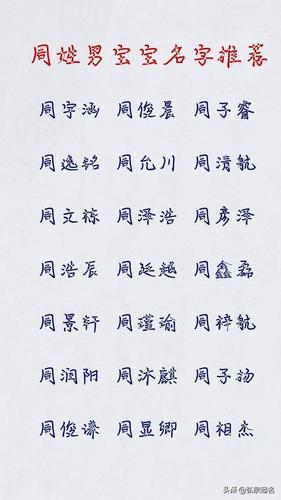 周姓男宝宝名字推荐
周宇涵 周俊晨 周子睿
周逸铭 周允川 周清航
周文棕 周泽浩 周彦泽
周浩辰 周延越 周鑫磊
周景轩 周瑾瑜 周梓航
周润阳 周沐麒 周子扬
周俊谦 周显卿 周祖杰
头条@弘宗起名